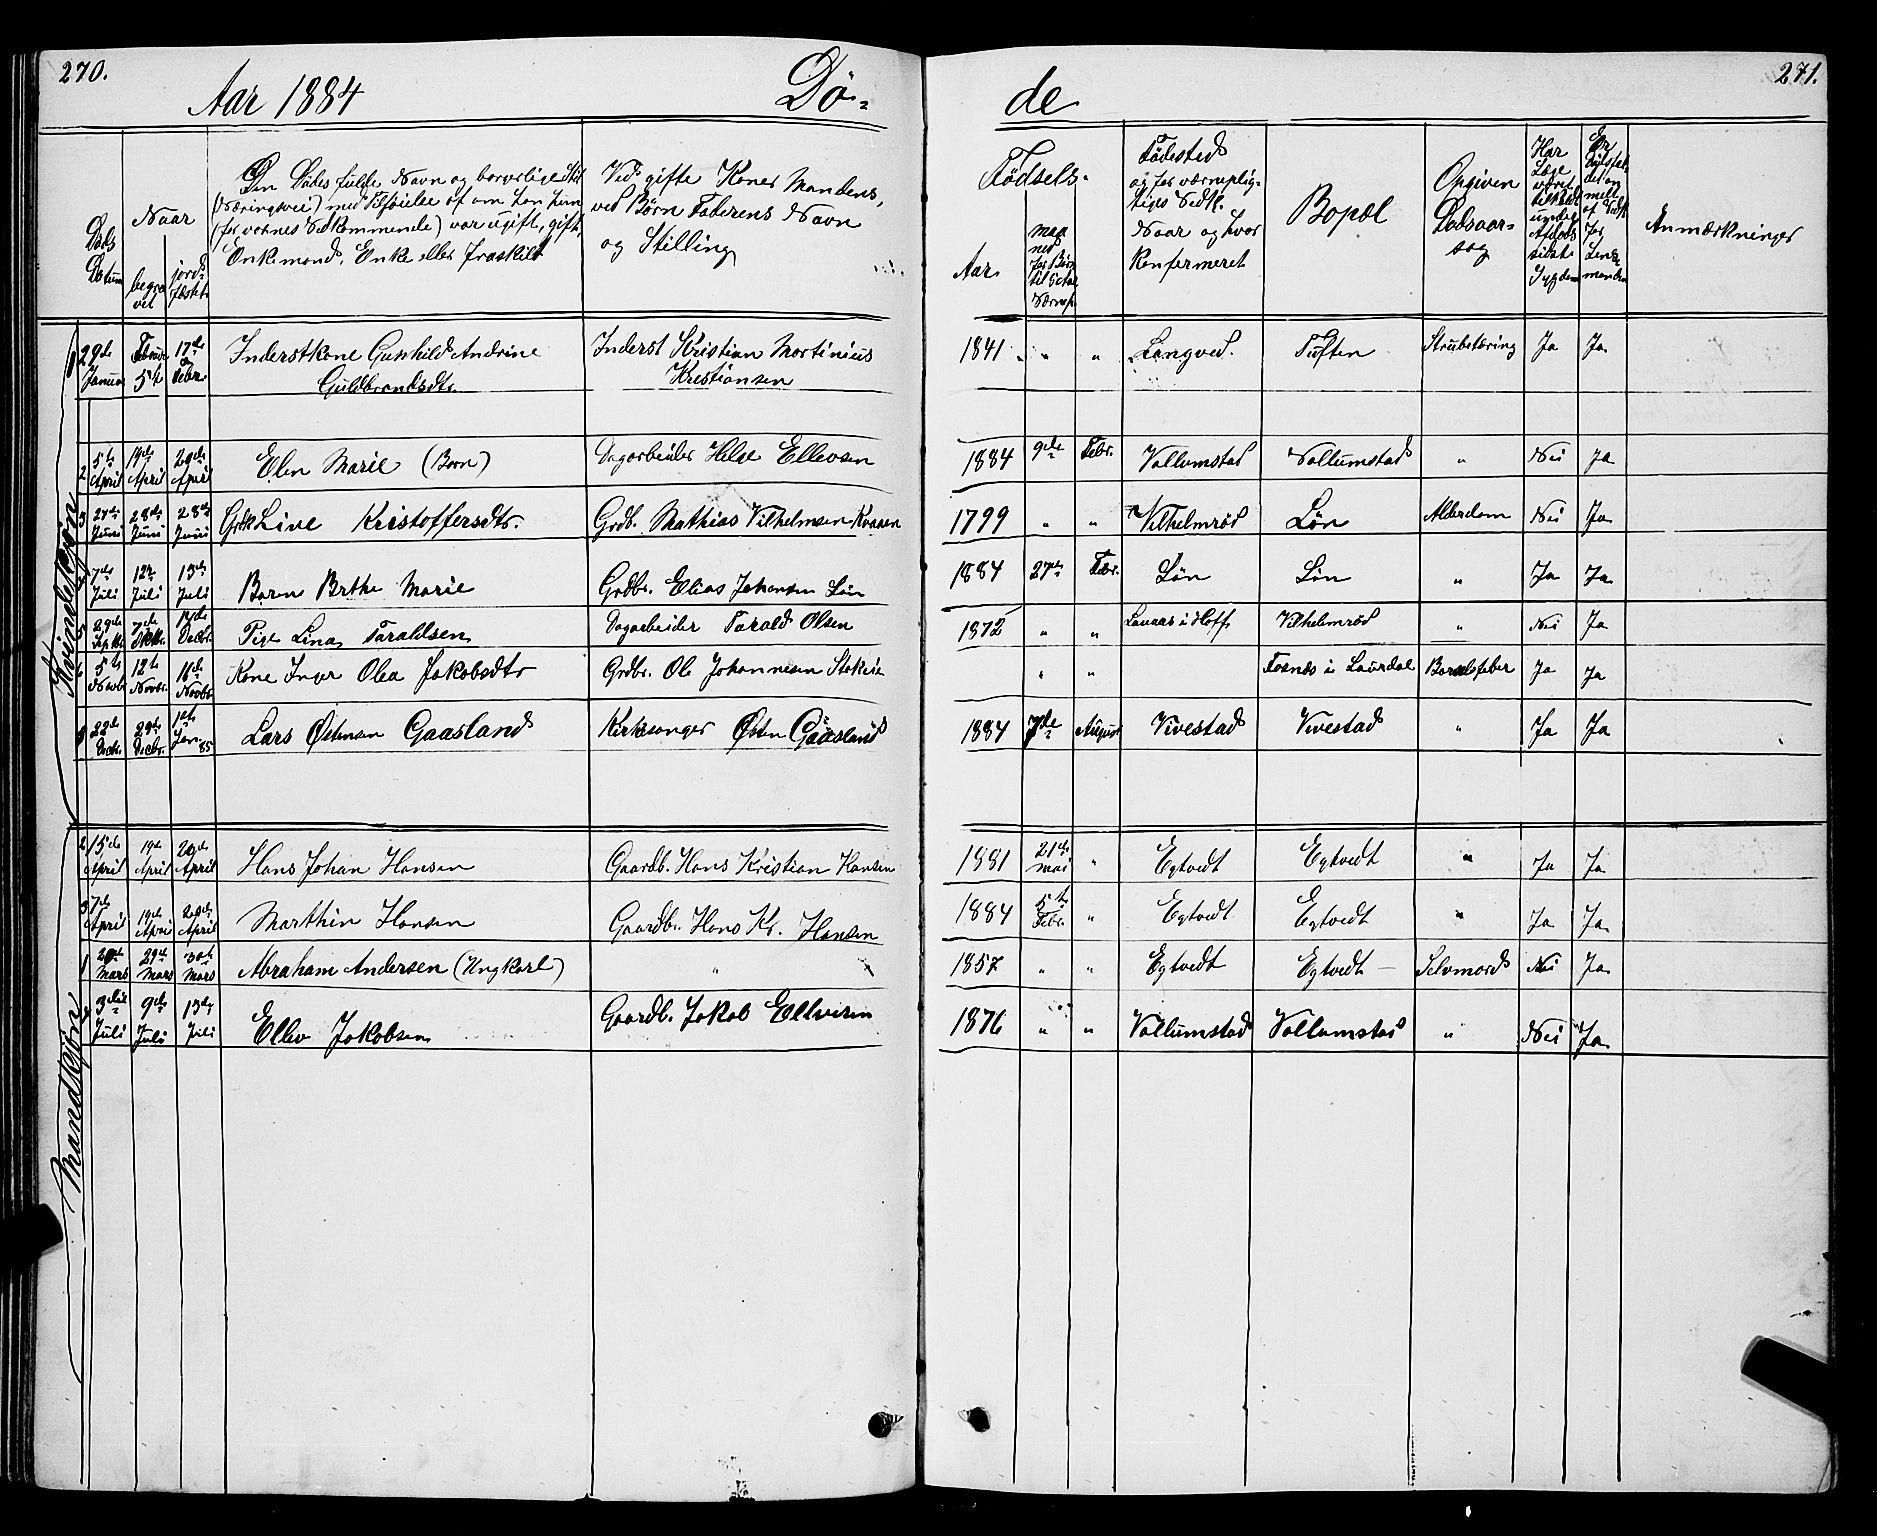 270.
Aar 1884
Dö-
de
271.
Döds
Datum
Naar
begra
vet
jord-
fæstet
Den Dödes fulde Navn og borgerlige Stil
(Næringsvei) med Tilföielse af om han hun
(for voxnes Vedkommende) var ugift, gift,
Enkemand, Enke eller fraskilt
Ved gifte Koner Mandens,
ved Börn Faderens Navn
og Stilling
Födsels-
Aar
Födested
og for værneplig-
tiges Vedk.
Naar og hvor
Konfermeret
Bopæl
Opgiven
Dødsaar-
sag
Har
Læge
været
tilkaldt
under
Afdöds
sidste
Sygdom
Anmærkninger
Kvindekjön
1 29de Januar Februar 5te 17de Febr. Inderstkone Gunhild Andrine Guldbrandsdtr. Inderst Kristian Martinius Kristiansen 1841 " " Langved. Tuften Strubetæring Ja Ja
2 5te April 19de April 20de April Elen Marie (Barn) Dagarbeider Helge Ellevsen 1884 9de Febr. Vallumstad Vallumstad " Nei Ja
3 Juni 28de Juni 28de Juni Live Kristoffersdtr. Grdb. Mathias Vilhelmsen 1799 " " Vilhelmröd Lön Alderdom Nei Ja
7de Juli 12te Juli 13de Juli Barn Brthe Marie Grdbr. Elias Johansen Lön 1884 27de Febr. Lön Lön " Ja Ja
5 29de Septbr. 7de Decbr. Pige Lina Taraldsen Dagarbeider Tarald Olsen 1872 " " i Hoff Vilhelmröd " Nei Ja
5te Novb. 12te Novbr. 16de Novbr. Kone Inger Olea Jakobsdtr Grdbr. Ole Johannesen " " i Laurdal Barselfeber Ja Ja
22de Decbr. 29de Decbr. 1ste Jan. 85 Lars Østensen Gaasland Kirkesanger Østen Gaasland 1884 7de August Vivestad Vivestad " Ja Ja
Mandkjön
2 15de April 19de April 20de April Hans Johan Hansen Gaardb. Hans Kristian Hansen 1881 21de Mai " Egtvedt Egtvedt " Ja Ja
3 7de April 19de April 20de April Marthin Hansen Gaardbr. Hans Kr. Hansen 1884 5te Febr. " Egtvedt Egtvedt " Ja Ja
1 20de Mars 29de Mars 30te Mars Abraham Andersen (Ungkarl) " 1857 " " Egtvedt Egtvedt Selvmord Nei Ja
3die Juli 9de Juli 13de Juli Ellev Jakobsen Gaardb. Jakob Ellevsen 1876 " " Vallumstad Vallumstad " Nei Ja